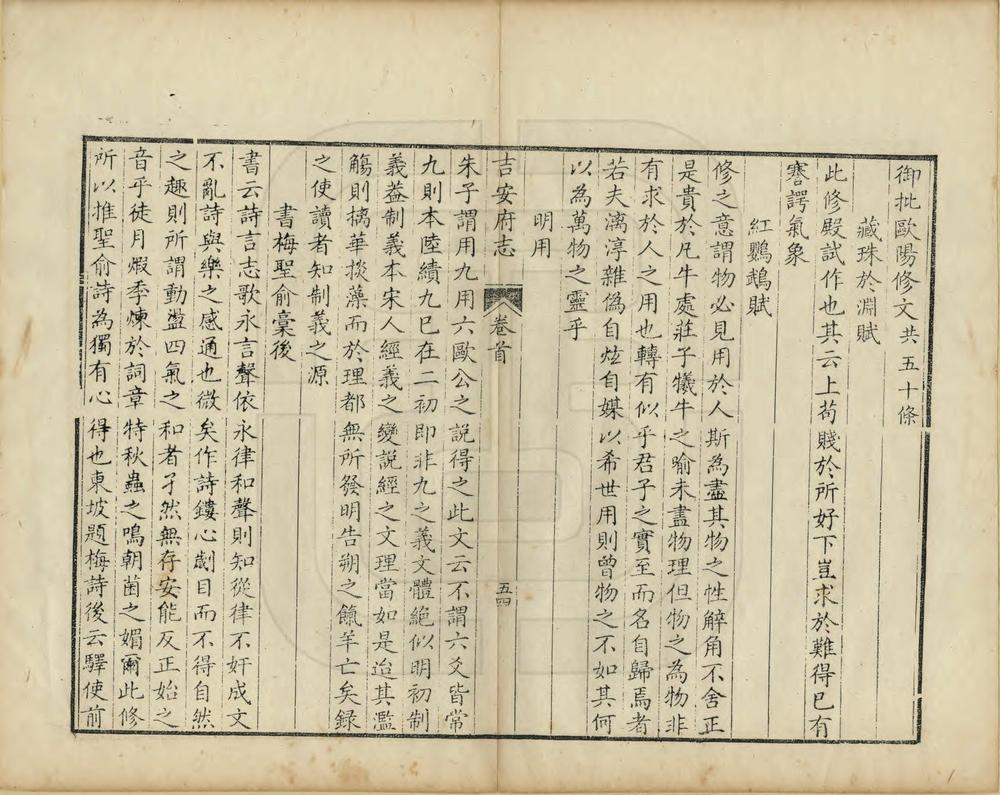 御批歐陽修文共五十條
藏珠於淵賦
此修殿試作也其云上苟賤於所好下豈求於難得已有
謇諤氣象
紅鸚鵡賦
修之意謂物必見用於人斯為盡其物之性騂角不舍正
是貴於凡牛處莊子犧牛之喻未盡物理但物之為物非
有求於人之用也轉有似乎君子之實至而名自歸焉者
若夫漓淳雜偽自炫自媒以希世用則曾物之不如其何
以為萬物之靈乎
明用
吉安府志 卷首 五四
朱子謂用九用六歐公之說得之此文云不謂六爻皆常
九則本陸績九巳在二初即非九之義文體絕似明初制
義葢制義本宋人經義之變說經之文理當如是迨其濫
觴則摛華掞藻而於理都無所發明告朔之餼羊亡矣録
之使讀者知制義之源
書梅聖俞稾後
書云詩言志歌永言聲依永律和聲則知從律不奸成文
不亂詩與樂之感通也微矣作詩鏤心劌目而不得自然
之趣則所謂動盪四氣之和者孑然無存安能反正始之
音乎徒月煆季煉於詞章特秋蟲之鳴朝菌之媚爾此修
所以推聖俞詩為獨有心得也東坡題梅詩後云驛使前